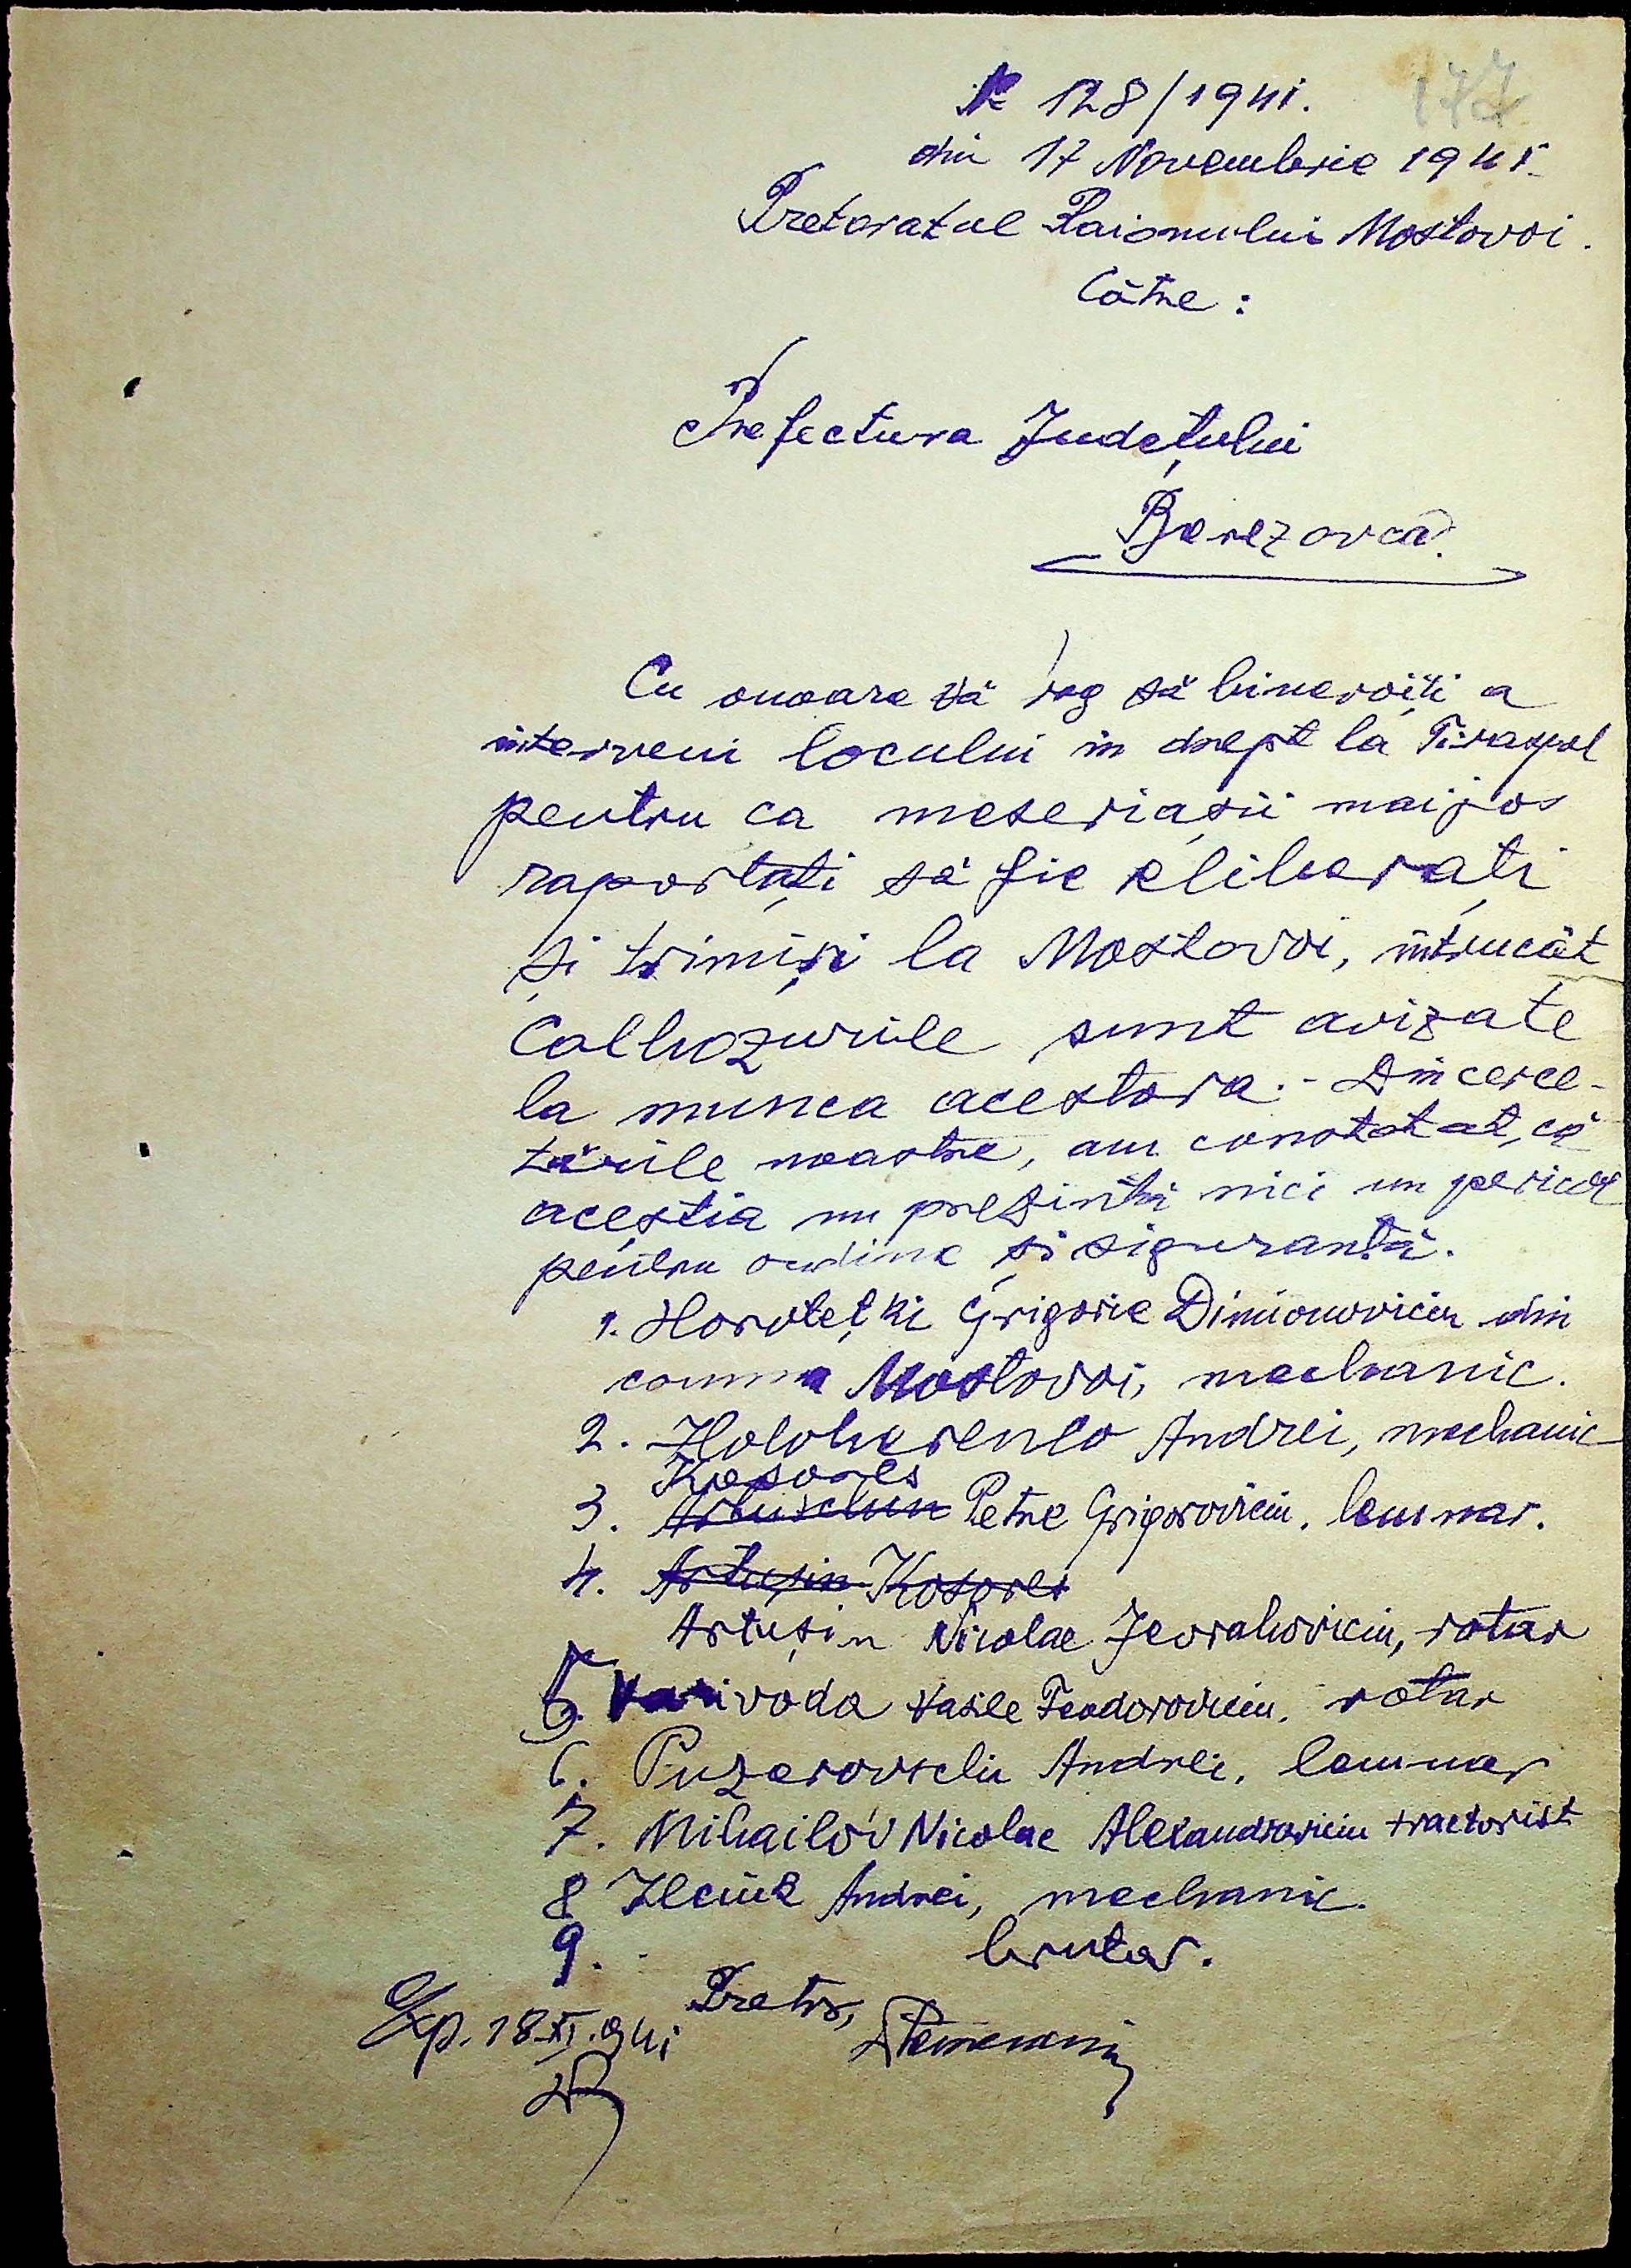 177
№ 128/1941.
din 17 Novembrie 1941
Pretoratul Raionului Mostovoi.
Cătne:
Prefectura Județului
Berezovca.
Cu onoare vă rog să binevoiți a
interveni locului in drept la Tiraspol
pentru ca meseriașii maijos
raportați să fie eliberați
și trimiși la Mostovoi, întrucât
Colhozurile sunt avizate
la munca acestora.- Din cerce-
tările noastre, am constatat, că
aceștia nu prezintă nici un pericol
pentru ordine și siguranță.
1. Horotețki Grigorie Dimionovici din
comuna Mostovoi, mechanic.
2. Andrei, mechanic
Kosores
3. Petre Grigorovici, lemnar.
4. Artușin Kosores
Artușin Nicolae, rotar
5. Varivoda Vasile Feodorovici, rotar
6. Andrei, lemnar
7. Mihailov Nicolae Alexandrovici tractorist
8 Andrei, mechanic.
9. brutar.
Pretor,
Exp. 18.XI.941